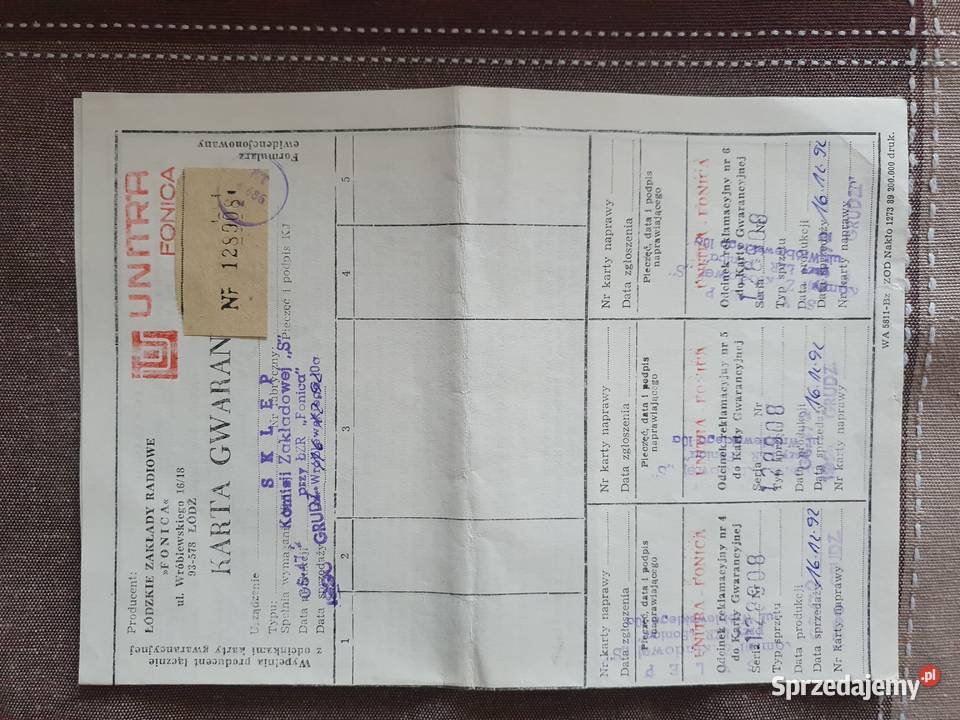 Producent:
ŁÓDZKIE ZAKŁADY RADIOWE
»FONICA«
ul. Wróblewskiego 16/18
93-578 ŁÓDŹ
UNITRA
FONICA
KARTA GWARAN
Nr 128908
Formularz
ewidencjonowany
Wypełnia producent łącznie
z odcinkami karty gwarancyjnej
Urządzenie
Typu:
Nr fabryczny
Spełnia wymagania
Pieczęć i podpis KJ
Data
Data sprzedaży
SKLEP
Komisji Zakładowej „S"
przy ŁZR „Fonica"
GRUDZ
1 2 3 4 5
Nr karty naprawy
Data zgłoszenia
Pieczęć, data i podpis
naprawiającego
UNITRA - FONICA
Odcinek reklamacyjny nr 4
do Karty Gwarancyjnej
Seria Nr
128908
Typ sprzętu
Data produkcji
Data sprzedaży 16.12.92
Nr karty naprawy
Nr karty naprawy
Data zgłoszenia
Pieczęć, data i podpis
naprawiającego
UNITRA - FONICA
Odcinek reklamacyjny nr 5
do Karty Gwarancyjnej
Seria Nr
128908
Typ sprzętu
Data produkcji
Data sprzedaży 16.12.92
GRUDZ
Nr karty naprawy
Nr karty naprawy
Data zgłoszenia
Pieczęć, data i podpis
naprawiającego
UNITRA - FONICA
Odcinek reklamacyjny nr 6
do Karty Gwarancyjnej
Seria Nr
128908
Typ sprzętu
Data produkcji
Data sprzedaży 16.12.92
GRUDZ
Nr karty naprawy
WA 5811-Bz ZOD Nakło 1273 89 200.000 druk.
Sprzedajemy.pl